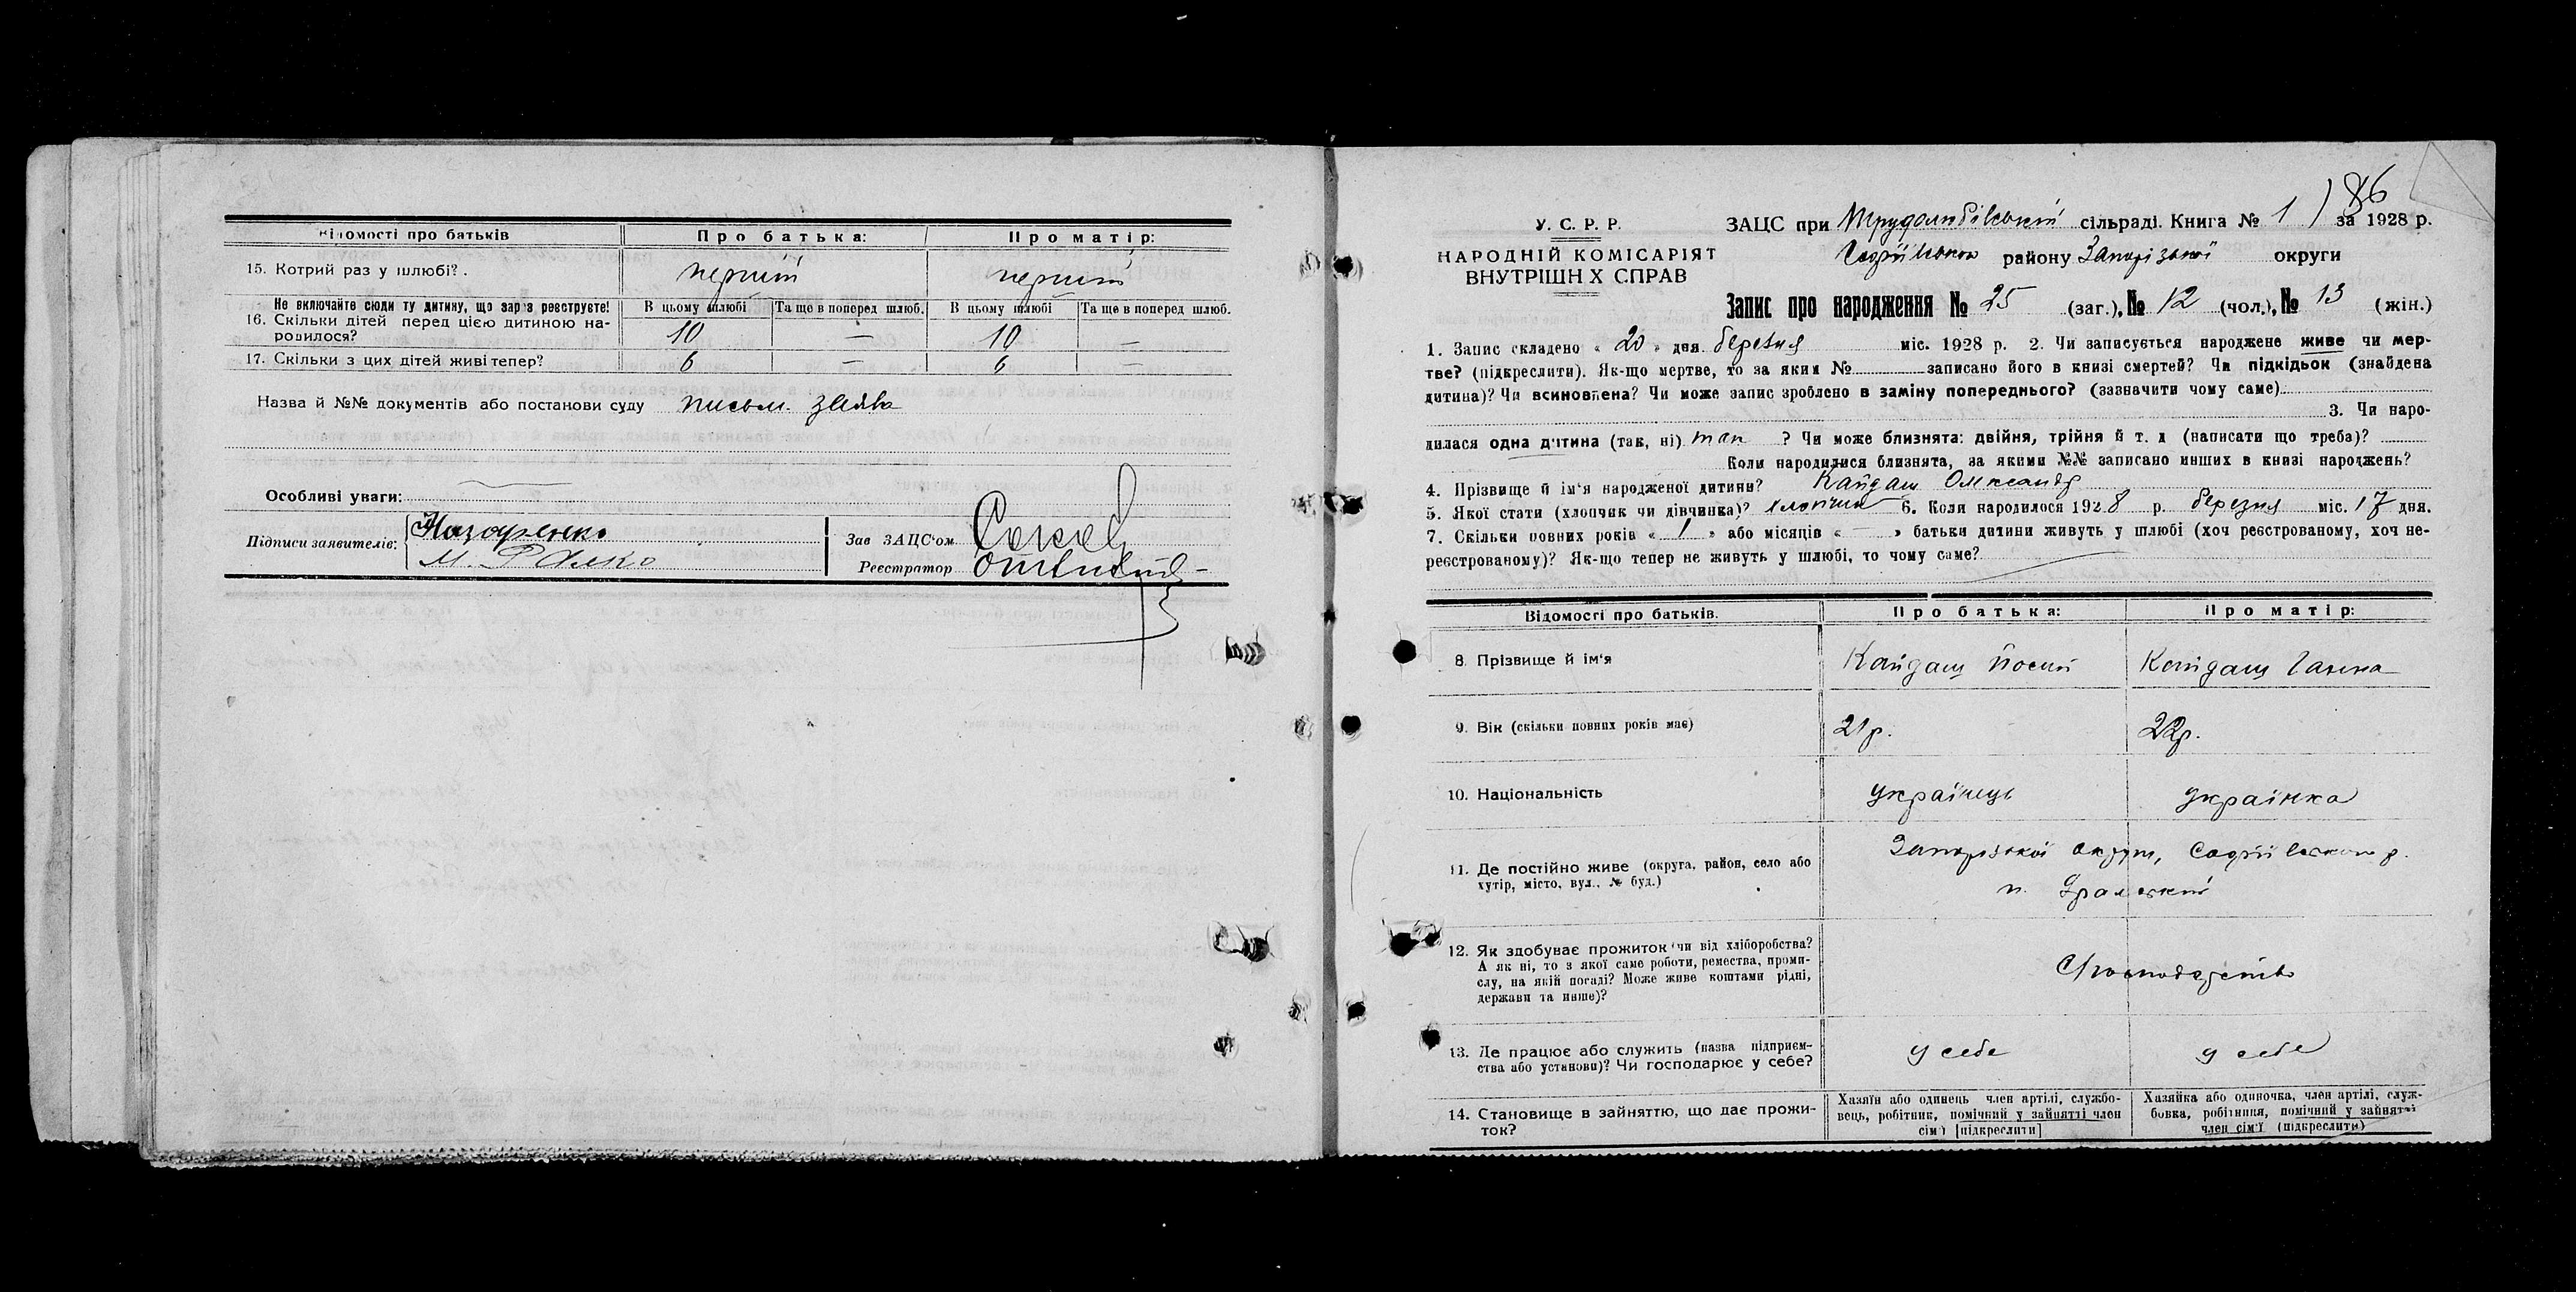 Відомості про батьків
Про батька:
Про матір:
15. Котрий раз у шлюбі?
перший
перший
Не включайте сюди ту дитину, що зараз реєструєте!
16. Скільки дітей перед цією дитиною народилося?
В цьому шлюбі
Та ще в поперед шлюб.
В цьому шлюбі
Та ще в поперед шлюб.
10
—
10
—
17. Скільки з цих дітей живі тепер?
6
—
6
—
Назва й №№ документів або постанови суду письм. заява
Особливі уваги:
Підписи заявителів:
Назаренко
М.
Зав ЗАЦС'ом
Реєстратор
86
У. С. Р. Р.
НАРОДНІЙ КОМІСАРІЯТ
ВНУТРІШНІХ СПРАВ
ЗАЦС при Трудолюбівській сільраді. Книга № 1 за 1928 р.
Софіївського району Запорізької округи
Запис про народження № 25 (заг.), № 12 (чол.), № 13 (жін.)
1. Запис складено « 20 » дня березня міс. 1928 р. 2. Чи записується народжене живе чи мер-
тве? (підкреслити). Як-що мертве, то за яким № записано його в книзі смертей? Чи підкідьок (знайдена
дитина)? Чи всиновлена? Чи може запис зроблено в заміну попереднього? (зазначити чому саме)
3. Чи наро-
дилася одна дитина (так, ні) так ? Чи може близнята: двійня, трійня й т. д (написати що треба)?
Коли народилися близнята, за якими №№ записано инших в книзі народжень?
4. Прізвище й ім'я народженої дитини? Кайдаш Олександр
5. Якої стати (хлопчик чи дівчинка)? хлопчик 6. Коли народилося 1928 р. березня міс. 17 дня.
7. Скільки повних років « 1 » або місяців « — » батьки дитини живуть у шлюбі (хоч реєстрованому, хоч не-
реєстрованому)? Як-що тепер не живуть у шлюбі, то чому саме?
Відомості про батьків.
Про батька:
Про матір:
8. Прізвище й ім'я
Кайдаш Йосип
Кайдаш Ганна
9. Вік (скільки повних років має)
21р.
22р.
10. Національність
українець
українка
11. Де постійно живе (округа, район, село або
хутір, місто, вул., № буд.)
Запорізької округи, Софіївського р.
п. Уральский
12. Як здобуває прожиток (чи від хліборобства?
А як ні, то з якої саме роботи, ремества, проми-
слу, на якій посаді? Може живе коштами рідні,
держави та инше)?
Господарство
13. Де працює або служить (назва підприєм-
ства або установи)? Чи господарює у себе?
у себе
у себе
14. Становище в зайняттю, що дає прожи-
ток?
Хазяїн або одинець член артілі, службо-
вець, робітник, помічний у зайнятті член
сім'ї [підкреслити]
Хазяйка або одиночка, член артілі, служ-
бовка, робітниця, помічний у зайнятті
член сім'ї (підкреслити)